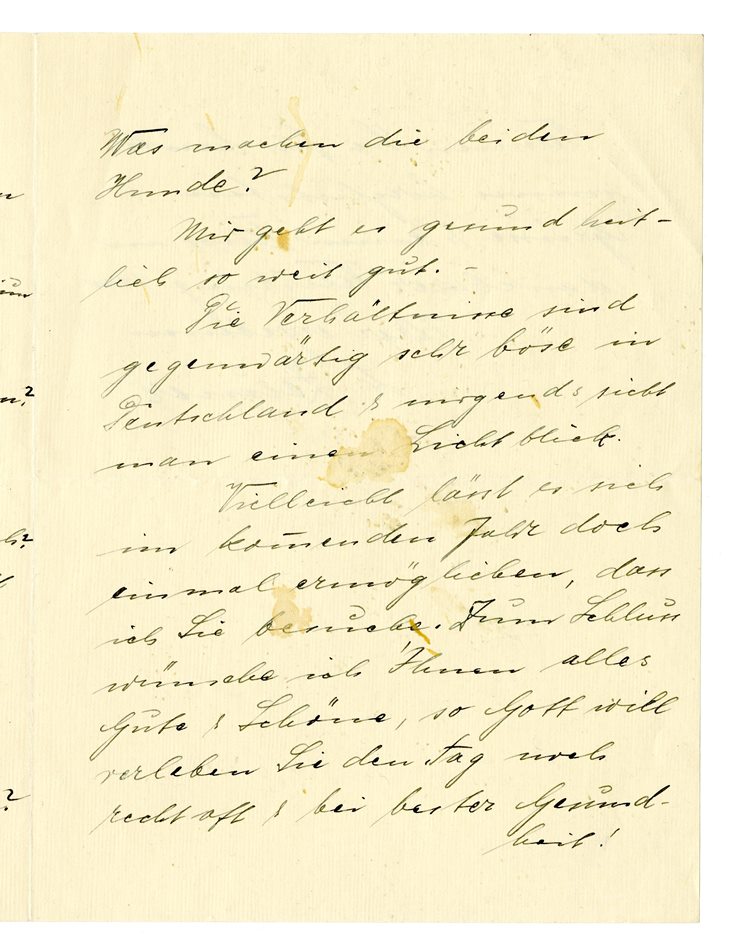 Was machen die beiden
Hunde?
Mir geht es gesundheit-
lich so weit gut. -
Die Verhältnisse sind
gegenwärtig sehr böse in
Deutschland & nirgends sieht
man einen Lichtblick.
Vielleicht lässt es sich
im kom̅enden Jahr doch
einmal ermöglichen, dass
ich Sie besuche. Zum Schluss
wünsche ich Ihnen alles
Gute & Schöne, so Gott will
verleben Sie den Tag noch
recht oft & bei bester Gesund-
heit!